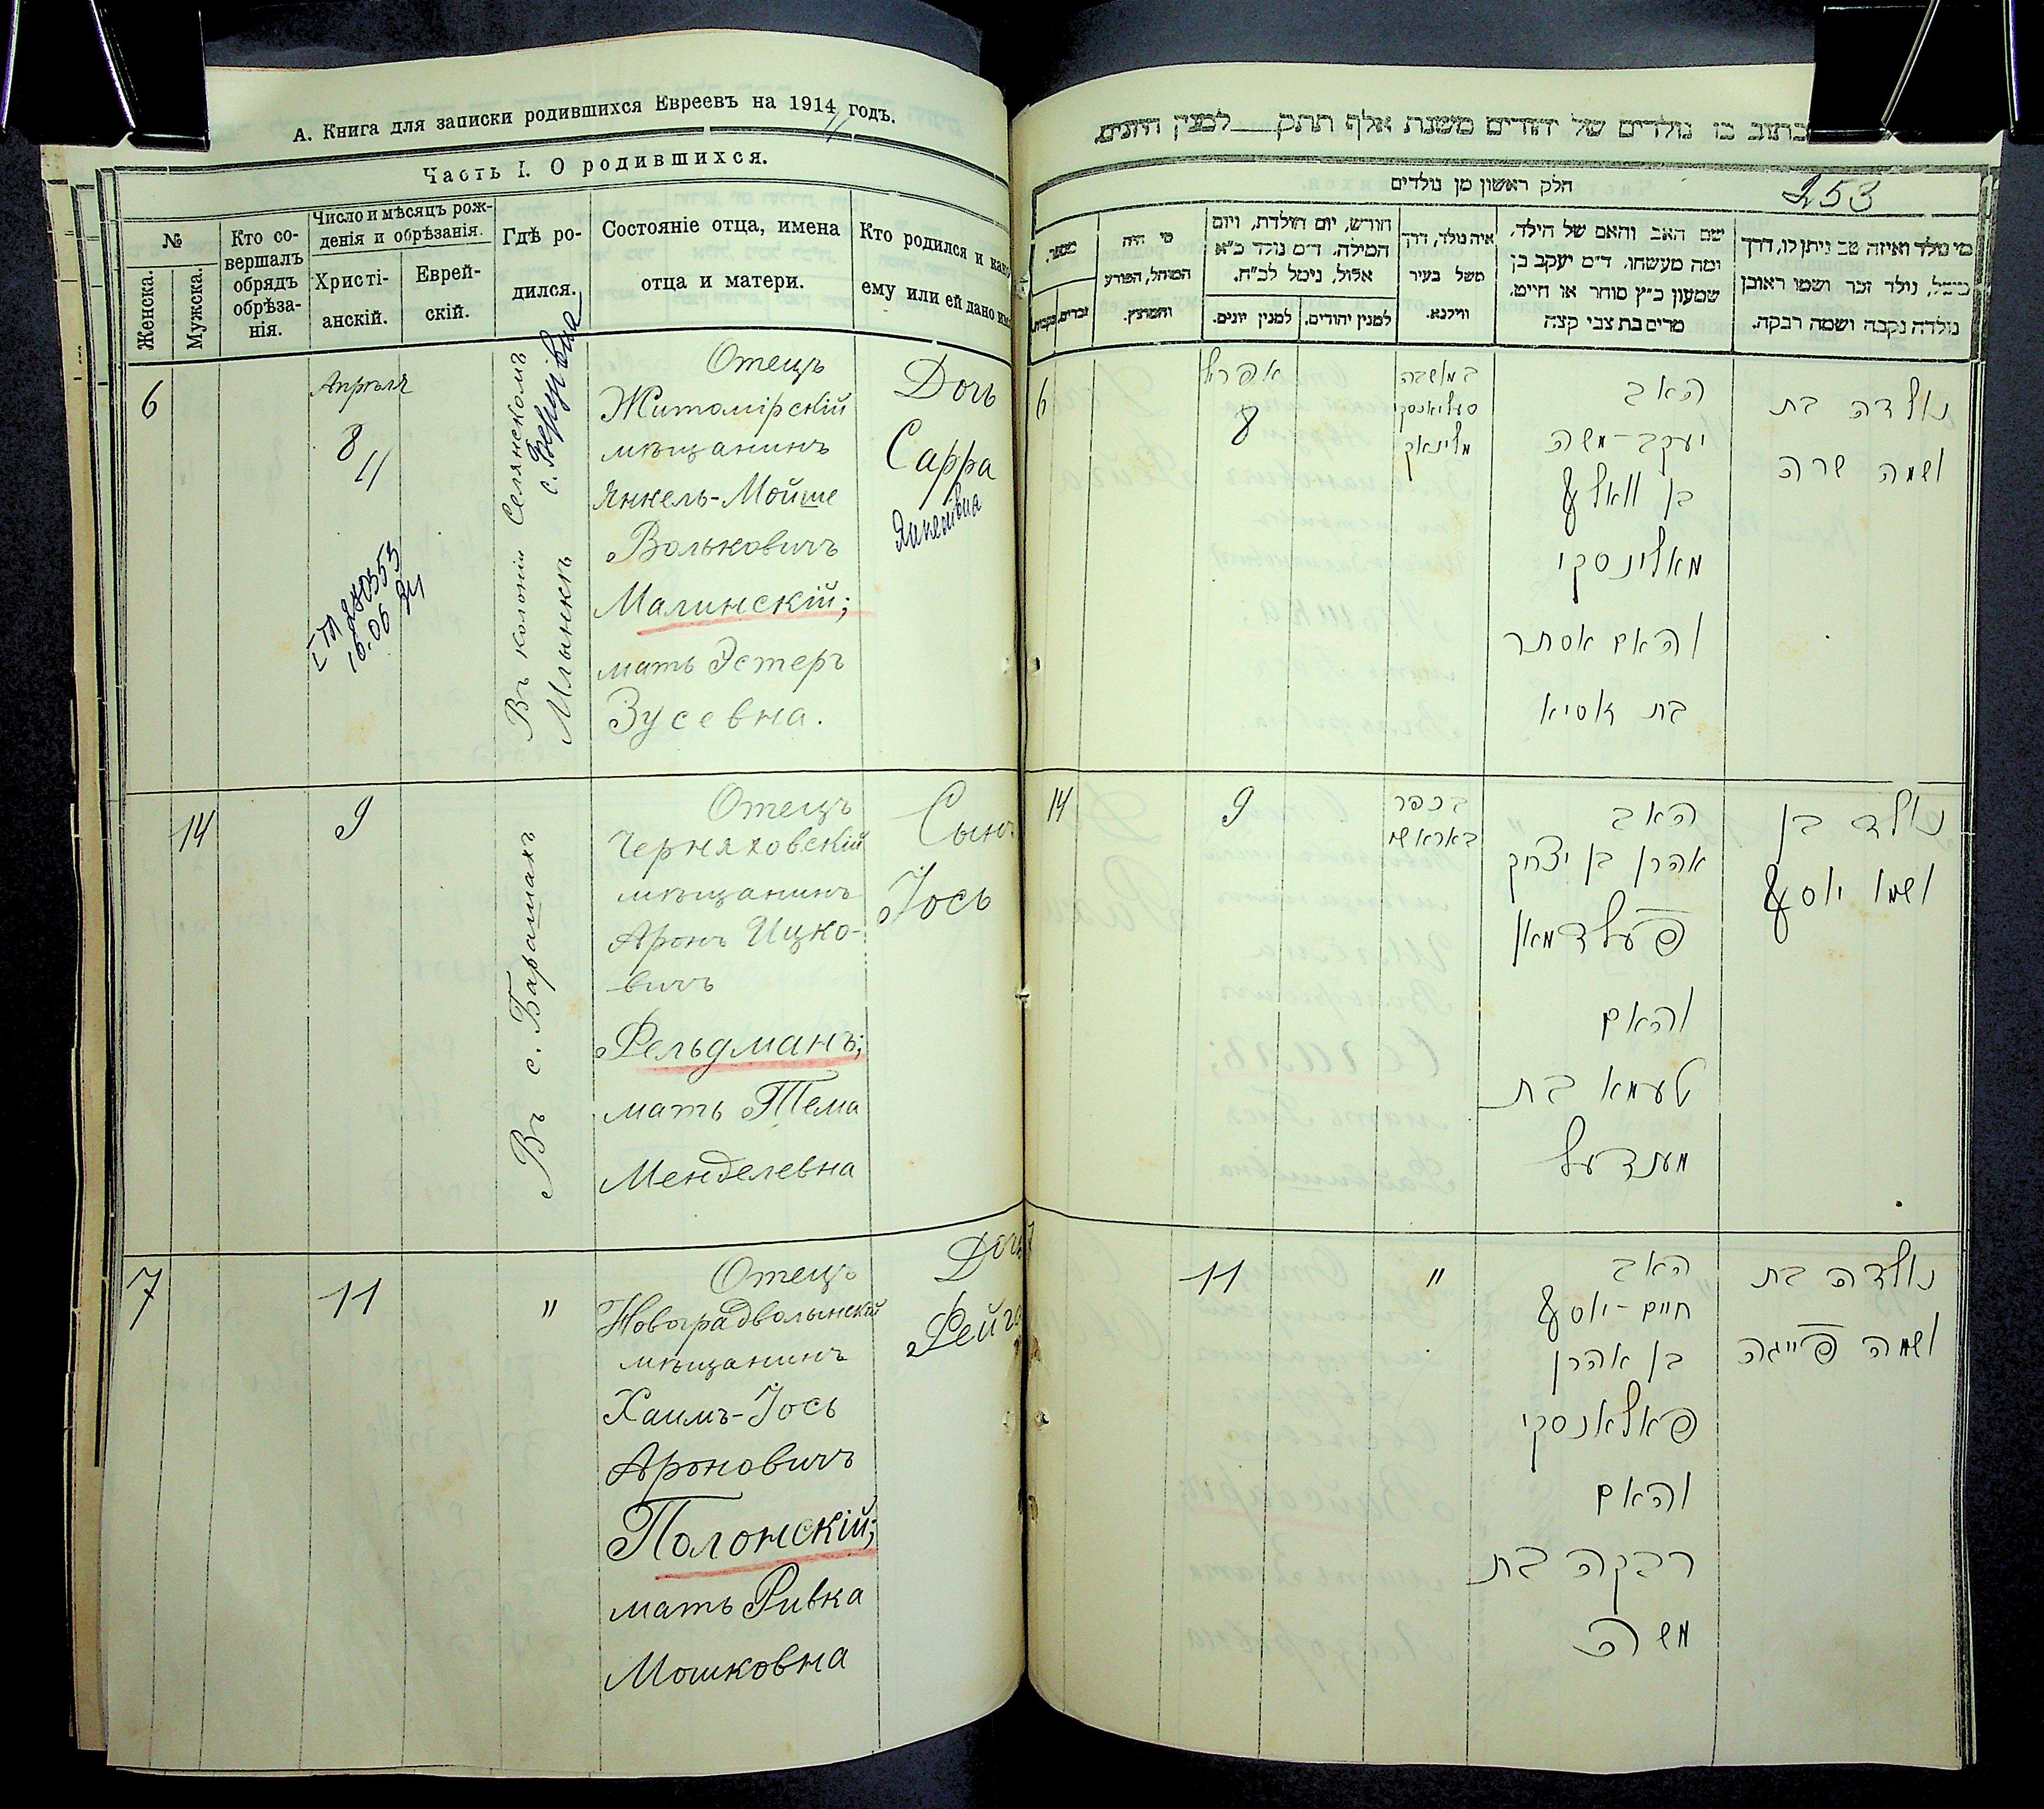 А. Книга для записки родившихся Евреевъ на 1914 годъ.
Часть I. О родившихся.
№
Женска.
Мужска.
Кто со-
вершалъ
обрядъ
обрѣза-
нія.
Число и мѣсяцъ рож-
денія и обрѣзанія.
Христі-
анскій.
Еврей-
скій.
Гдѣ ро-
дился.
Состояніе отца, имена
отца и матери.
Кто родился и како
ему или ей дано им
6
Апрѣля
8
11
Въ колоніи Селянскомъ
Млынкѣ
Отецъ
Житомірскій
мѣщанинъ
Янкель-Мойше
Вольковичъ
Малинскій;
мать Эстеръ
Зусевна.
Дочь
Сарра
Янкелівна
14
9
Въ с. Барашахъ
Отецъ
Черняховскій
мѣщанинъ
Аронъ Ицко-
вичъ
Фельдманъ;
мать Тема
Менделевна
Сынъ
Іось
7
11
"
Отецъ
Новоградволынскій
мѣщанинъ
Хаимъ-Іось
Ароновичъ
Полонскій;
мать Ривка
Мошковна
Дочь
Фейга
כתוב בו נולדים של יהודים משנת אלף תתק למנין היונים
חלק ראשון מן נולדים
253
מי נולד ואיזה שם ניתן לו, דרך
משל, נולד זכר ושמו ראובן
נולדה נקבה ושמה רבקה.
שם האב והאם של הילד,
ומה מעשהו. ד״מ יעקב בן
שמעון כ״ץ סוחר או חייט.
מרים בת צבי קצה
איה נולד, דרך
משל בעיר
ווילנא.
חודש, יום הולדת, ויום
המילה. ד״מ נולד כ״א
אלול, נימל לכ״ח.
למנין יהודים.
למנין יונים.
מי היה
המוהל, הפורע
והמוצץ.
מספר.
זכרים.
נקבות.
6
אפריל
8
במושבה
סעליאנסקי
מלינאק
האב
יעקב-משה
בן וואלף
מאלינסקי
והאם אסתר
בת זוסיא
נולדה בת
ושמה שרה
14
9
בכפר
באראשי
האב
אהרן בן יצחק
פעלדמאן
והאם
טעמא בת
מענדעל
נולד בן
ושמו יוסף
7
11
"
האב
חיים-יוסף
בן אהרן
פאלאנסקי
והאם
רבקה בת
משה
נולדה בת
ושמה פייגה